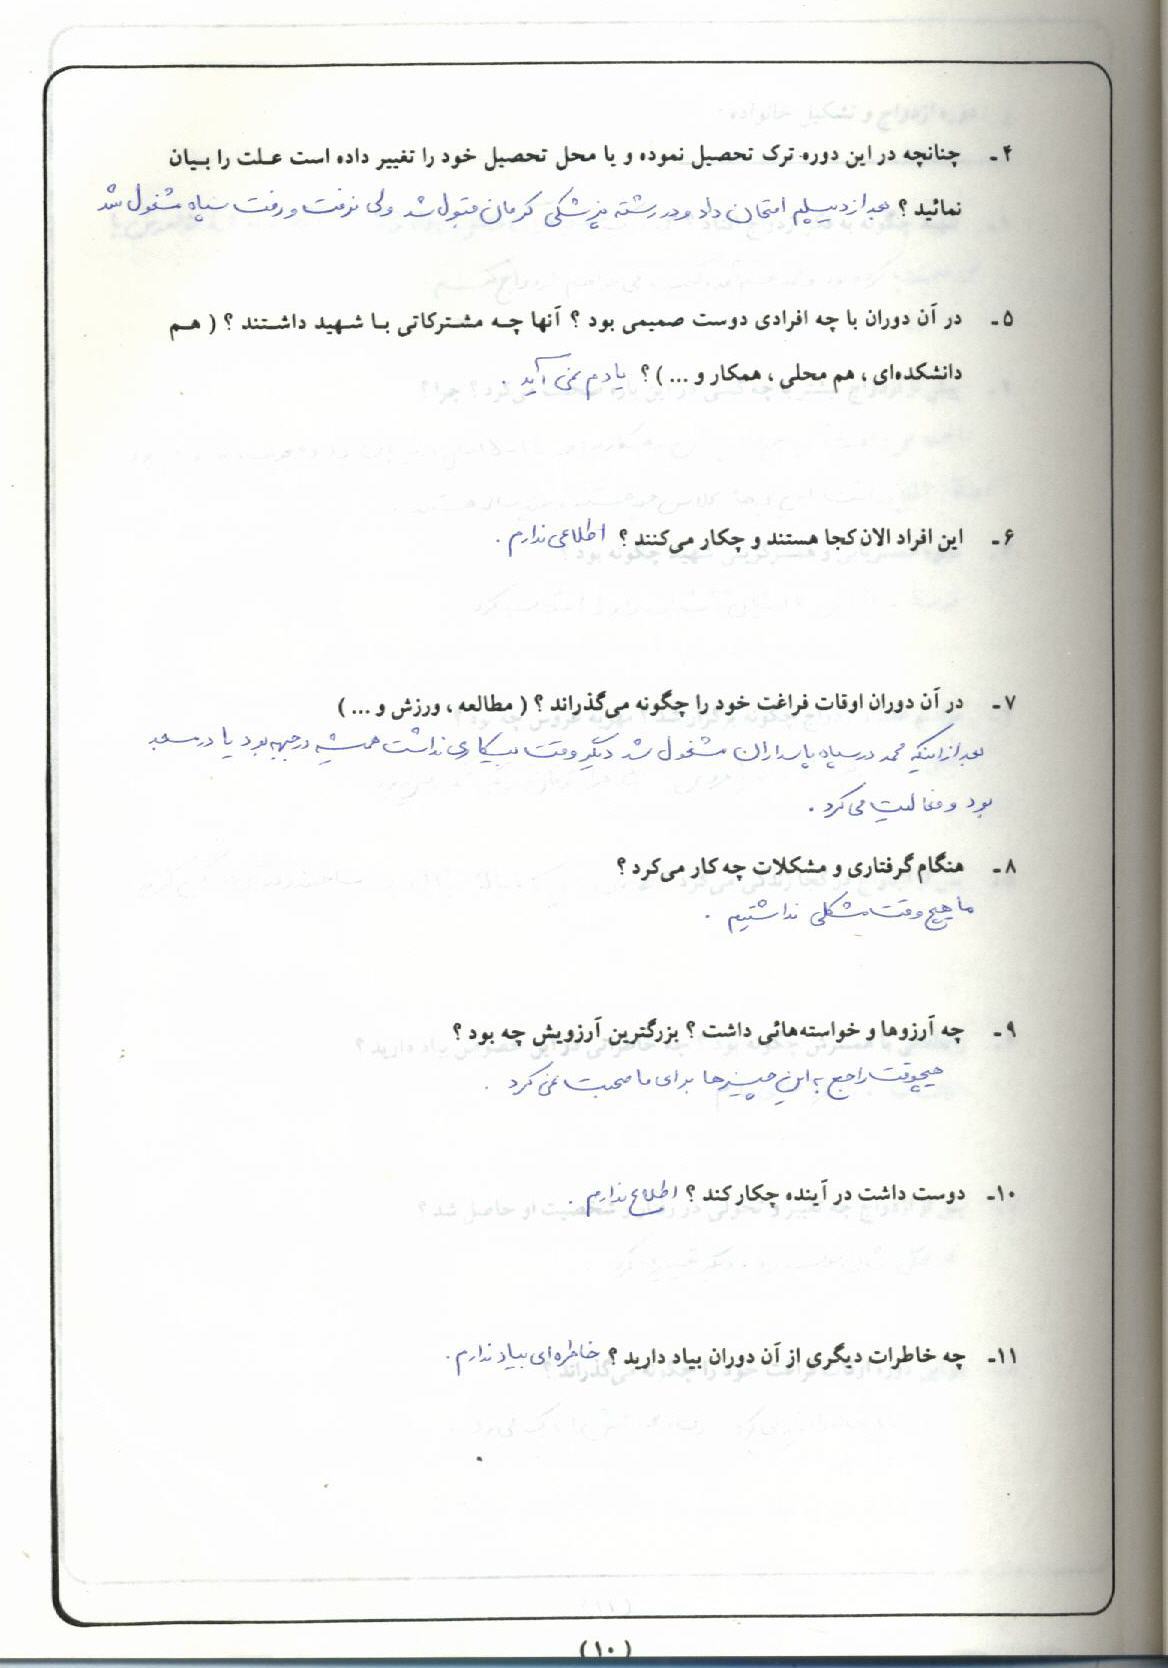 ۴ - چنانچه در این دوره ترک تحصیل نموده و یا محل تحصیل خود را تغییر داده است علت را بیان
نمائید ؟ بعد از دیپلم امتحان داد و در رشته پزشکی کرمان قبول شد ولی نرفت و رفت سپاه مشغول شد
۵ - در آن دوران با چه افرادی دوست صمیمی بود ؟ آنها چه مشترکاتی با شهید داشتند ؟ ( هم
دانشکده‌ای ، هم محلی ، همکار و ... ) ؟ یادم نمی آید .
۶ - این افراد الان کجا هستند و چکار می‌کنند ؟ اطلاعی ندارم .
۷ - در آن دوران اوقات فراغت خود را چگونه می‌گذراند ؟ ( مطالعه ، ورزش و ... )
بعد از اینکه محمد در سپاه پاسداران مشغول شد دیگر وقت بیکاری نداشت همیشه در جبهه بود یا در مسجد
بود و فعالیت می کرد .
۸ - هنگام گرفتاری و مشکلات چه کار می‌کرد ؟
ما هیچ وقت مشکلی نداشتیم .
۹ - چه آرزوها و خواسته‌هائی داشت ؟ بزرگترین آرزویش چه بود ؟
هیچوقت راجع به این چیزها برای ما صحبت نمی کرد .
۱۰ - دوست داشت در آینده چکار کند ؟ اطلاع ندارم .
۱۱ - چه خاطرات دیگری از آن دوران بیاد دارید ؟ خاطره ای بیاد ندارم .
( ۱۰ )